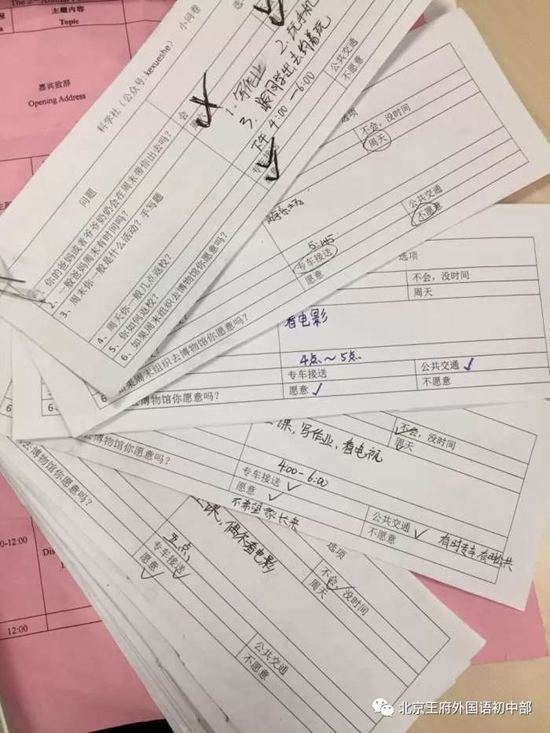 主题内容
Topic
嘉宾致辞
Opening Address
科学社（公众号：kexueshe） 小问卷
问题
1、你的爸妈或者爷爷奶奶会在周末带你出去吗？ 会
2、一般爸妈周末有时间吗？
3、周末你一般是什么活动？手写题
1. 写作业 2. 玩手机
3. 跟同学出去约着玩
4、周天你一般几点返校？
下午 4:00-6:00
5、你如何返校？
6、如果周末组织去博物馆你愿意吗？
公共交通
不愿意
不会，没时间
周天
5:45
专车接送 公共交通
愿意 不愿意
如果周末组织去博物馆你愿意吗？
选项
不会，没时间
周天
看电影
4点～5点
专车接送 公共交通
愿意 不愿意
6、如果周末组织去博物馆你愿意吗？
选项
不会，没时间
周天
课，写作业，看电视
4:00-6:00
专车接送 公共交通
愿意 不愿意
去博物馆你愿意吗？
不希望家长来
选项
不会，没时间
周天
课，偶尔看电影
五点
专车接送 公共交通
愿意 不愿意
去博物馆你愿意吗？
12:00
北京王府外国语初中部